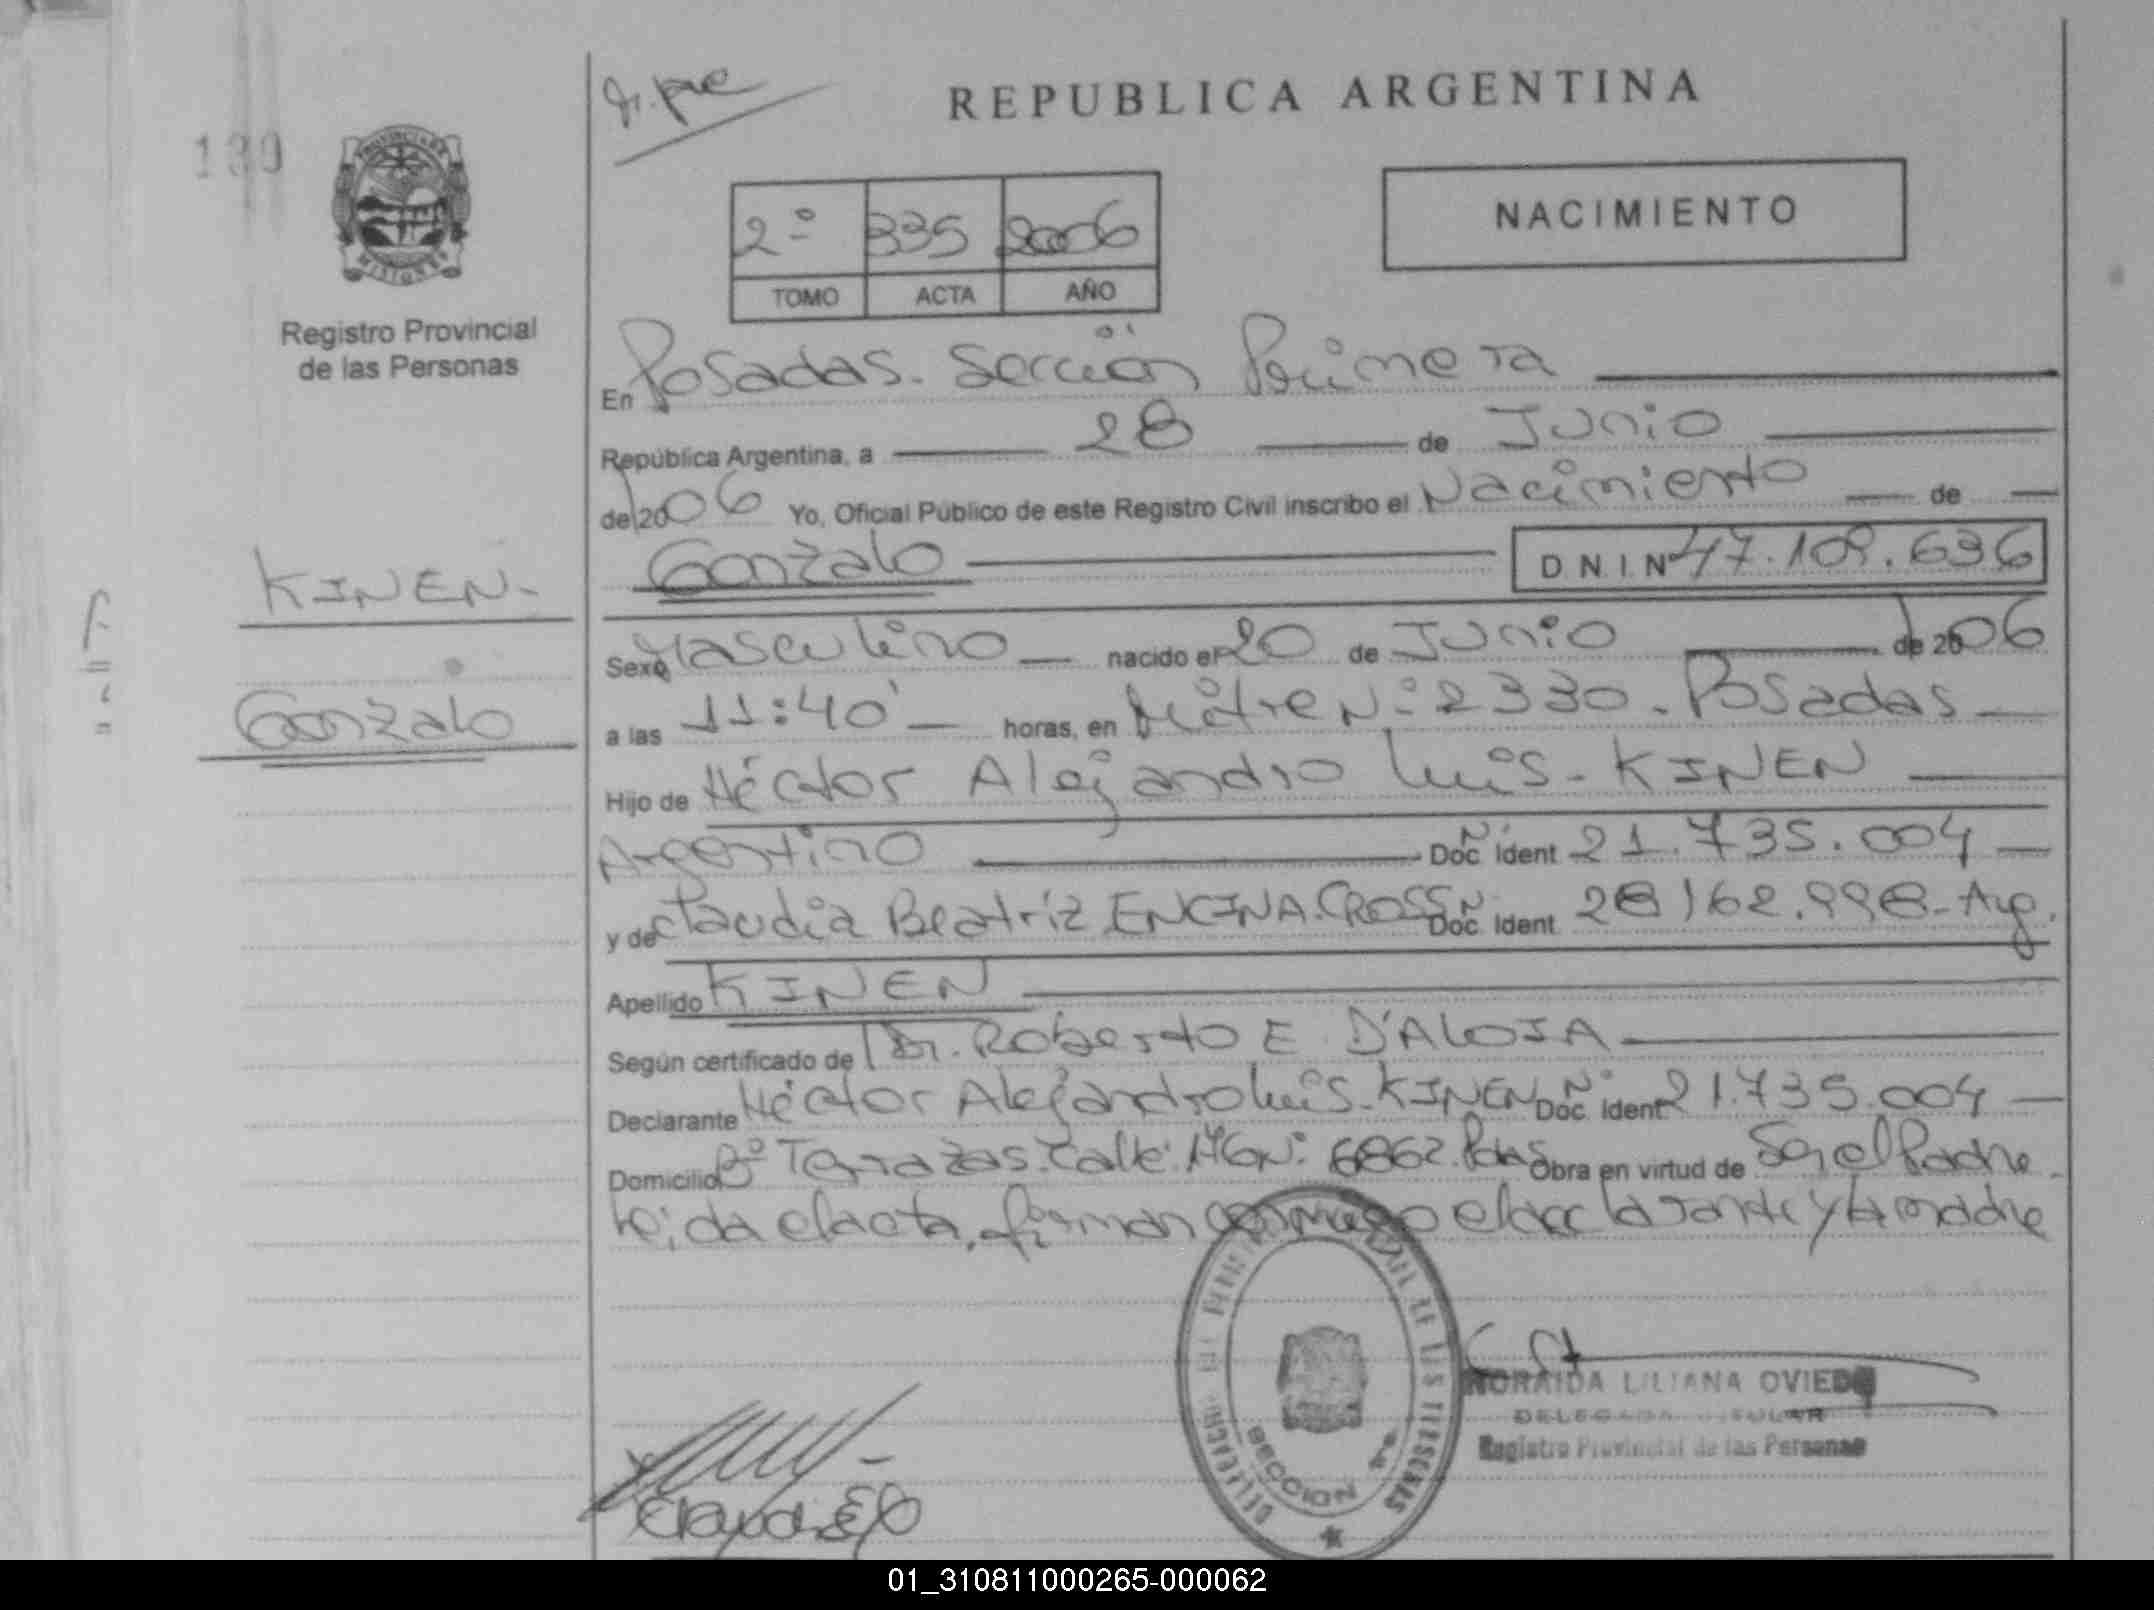 REPUBLICA ARGENTINA
130
PROVINCIA DE
MISIONES
Registro Provincial
de las Personas
2º 335 2006
TOMO ACTA AÑO
NACIMIENTO
En Posadas. Sección Primera
República Argentina, a 28 de Junio
de 2006 Yo, Oficial Público de este Registro Civil inscribo el Nacimiento de
Gonzalo D N I Nº 47.109.636
KINEN-
Gonzalo
Sexo Masculino nacido el 20 de Junio de 2006
a las 11:40' horas, en Mitre Nº 2330. Posadas
Hijo de Héctor Alejandro Luis - KINEN
Argentino Doc. Ident Nº 21.735.004
y de Claudia Beatriz ENCINA.CROSS Doc. Ident Nº 28162.998- Arg.
Apellido KINEN
Según certificado de Dr. Roberto E. D'ALOIA
Declarante Héctor Alejandro Luis. KINEN Doc. Ident Nº 21.735.004
Domicilio Bº Terrazas. Calle: 146 Nº: 6862. Pdas Obra en virtud de Ser el Padre.
leida el acta, firman conmigo el declarante y la madre
NORAIDA LILIANA OVIEDO
DELEGADA TITULAR
Registro Provincial de las Personas
SECCION 1ª
01_310811000265-000062